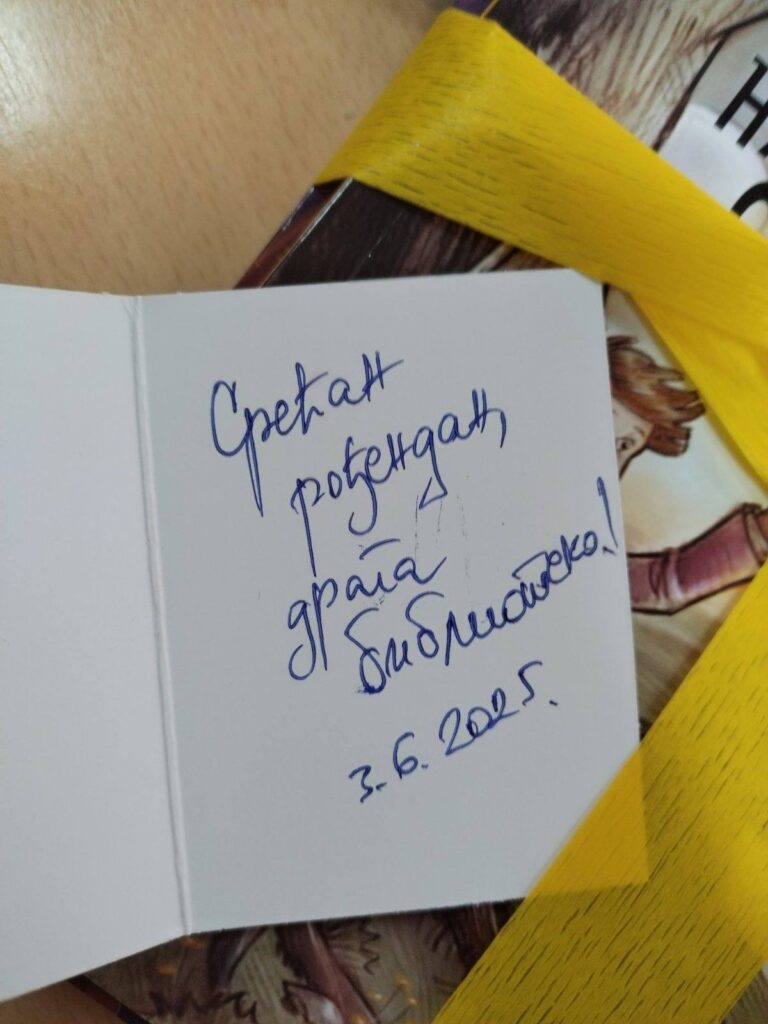 Срећан
рођендан,
драга
библиотеко!
3.6.2025.